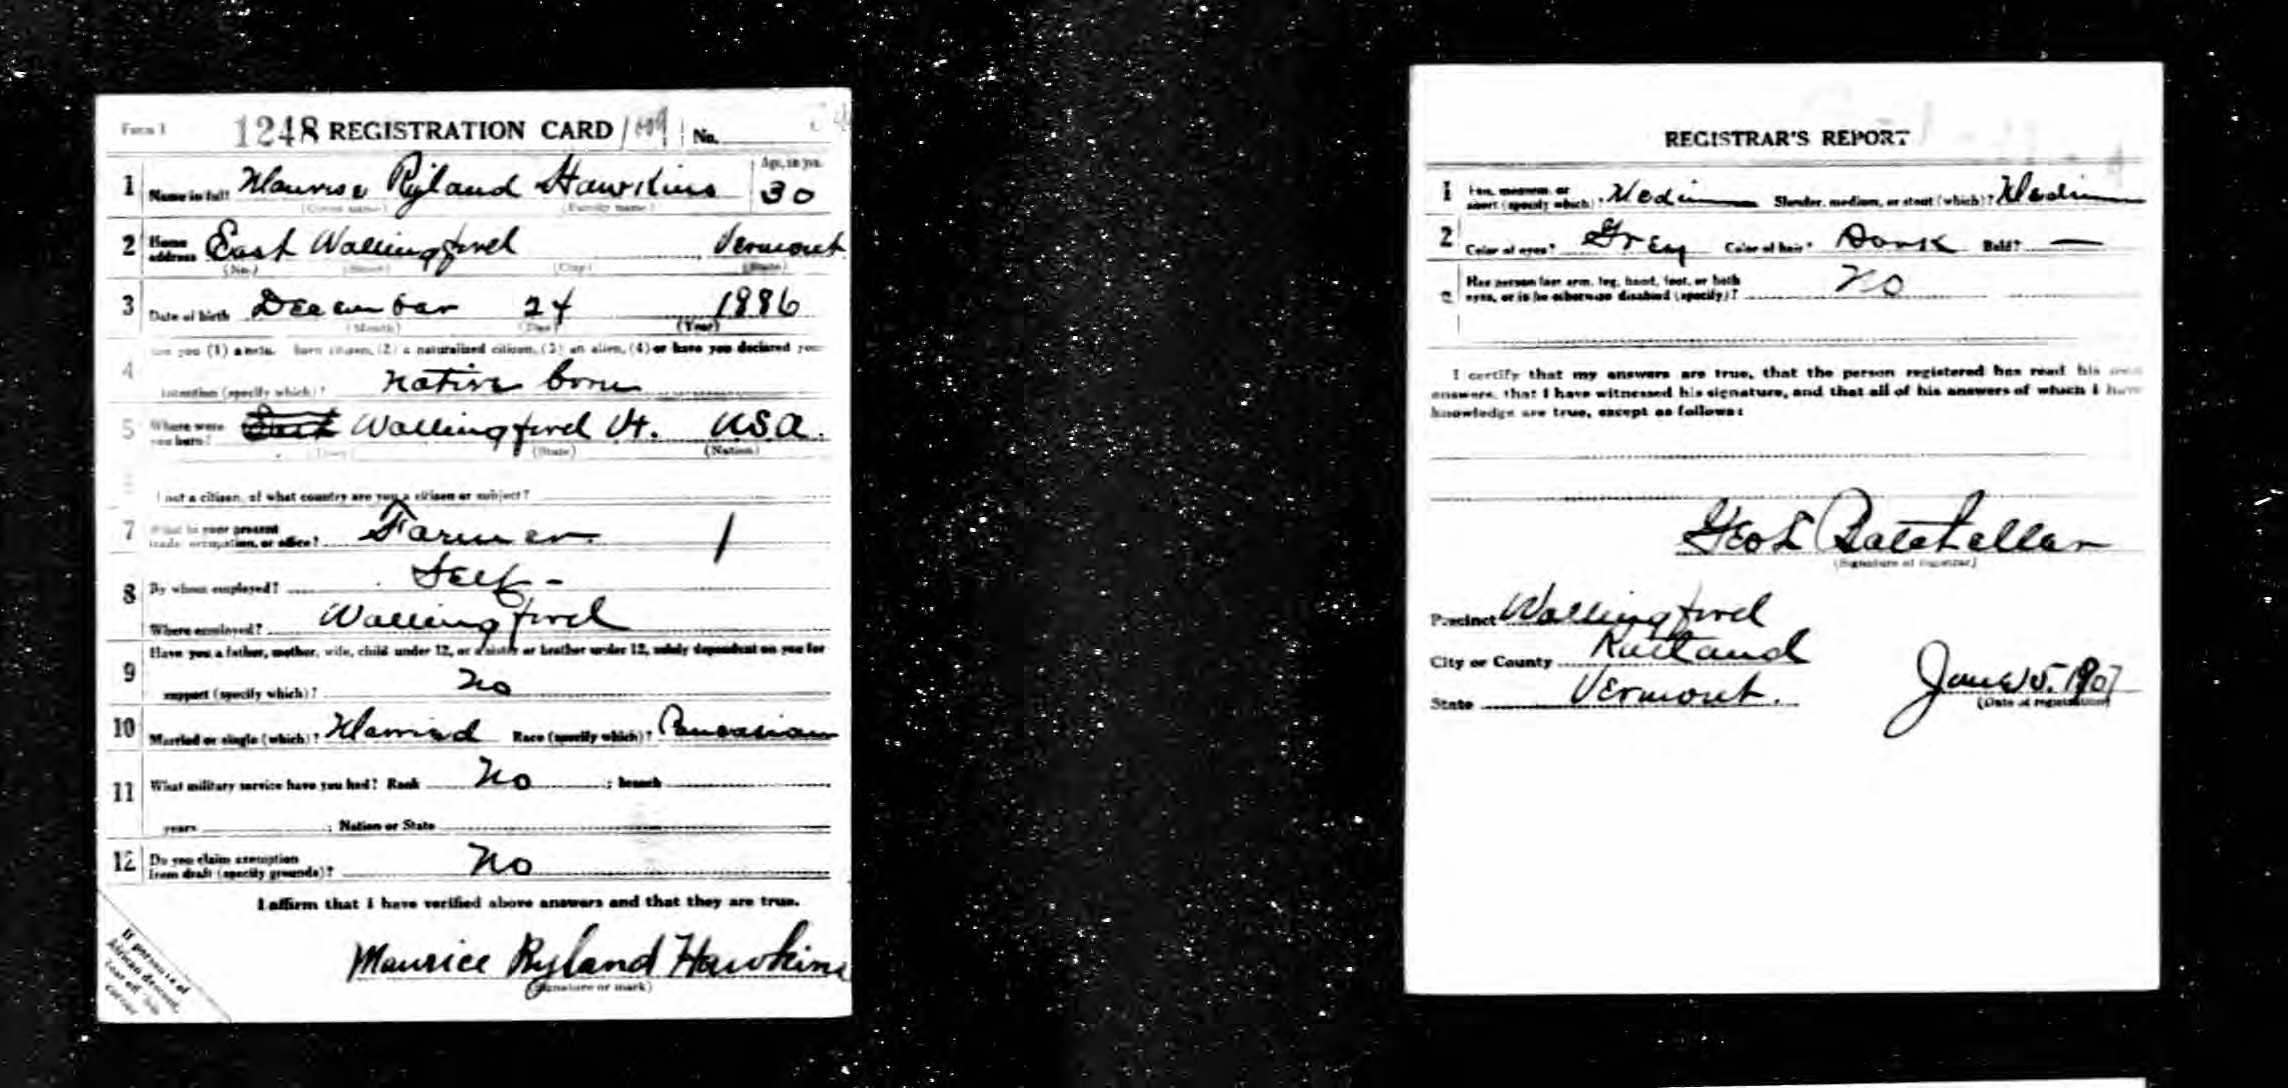 Form 1 1248 REGISTRATION CARD No.
1 Name in full Maurice Ryland Hawkins Age, in yrs. 30
(Given name) (Family name)
2 Home address East Wallingford Vermont
(No.) (Street) (City) (State)
3 Date of birth December 24 1886
(Month) (Day) (Year)
4 Are you (1) a natural-born citizen, (2) a naturalized citizen, (3) an alien, (4) or have you declared your
intention (specify which)? native born
5 Where were you born? East Wallingford Vt. U.S.A.
(Town) (State) (Nation)
6 If not a citizen, of what country are you a citizen or subject?
7 What is your present trade, occupation, or office? Farmer. 1
8 By whom employed? Self -
Where employed? Wallingford
9 Have you a father, mother, wife, child under 12, or a sister or brother under 12, solely dependent on you for
support (specify which)? No
10 Married or single (which)? Married Race (specify which)? Caucasian
11 What military service have you had? Rank No ; branch
years ; Nation or State
12 Do you claim exemption from draft (specify grounds)? No
I affirm that I have verified above answers and that they are true.
Maurice Ryland Hawkins
(Signature or mark)
If person is of
African descent,
tear off this
corner
REGISTRAR'S REPORT
1 Tall, medium, or short (specify which)? Medium Slender, medium, or stout (which)? Medium
2 Color of eyes? Grey Color of hair? Dark Bald? —
3 Has person lost arm, leg, hand, foot, or both eyes, or is he otherwise disabled (specify)? No
I certify that my answers are true, that the person registered has read his own
answers, that I have witnessed his signature, and that all of his answers of which I have
knowledge are true, except as follows:
Geo E Batcheller
(Signature of registrar)
Precinct Wallingford
City or County Rutland
State Vermont. June 5. 1917
(Date of registration)